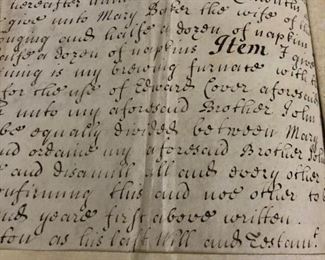 hereafter
I give unto Mary Baker the wife of th
longing and halfe a dozen of napkin
halfe a dozen of napkins Item I give
is my brewing furnace with
for the use of Edward Cover aforesaid
I unto my aforesaid Brother John
be equally divided between Mary
and ordaine my aforesaid Brother John
and disanull all and every other
confirming this and noe other to b
and yeare first above written.
ton as his last Will and Testamt